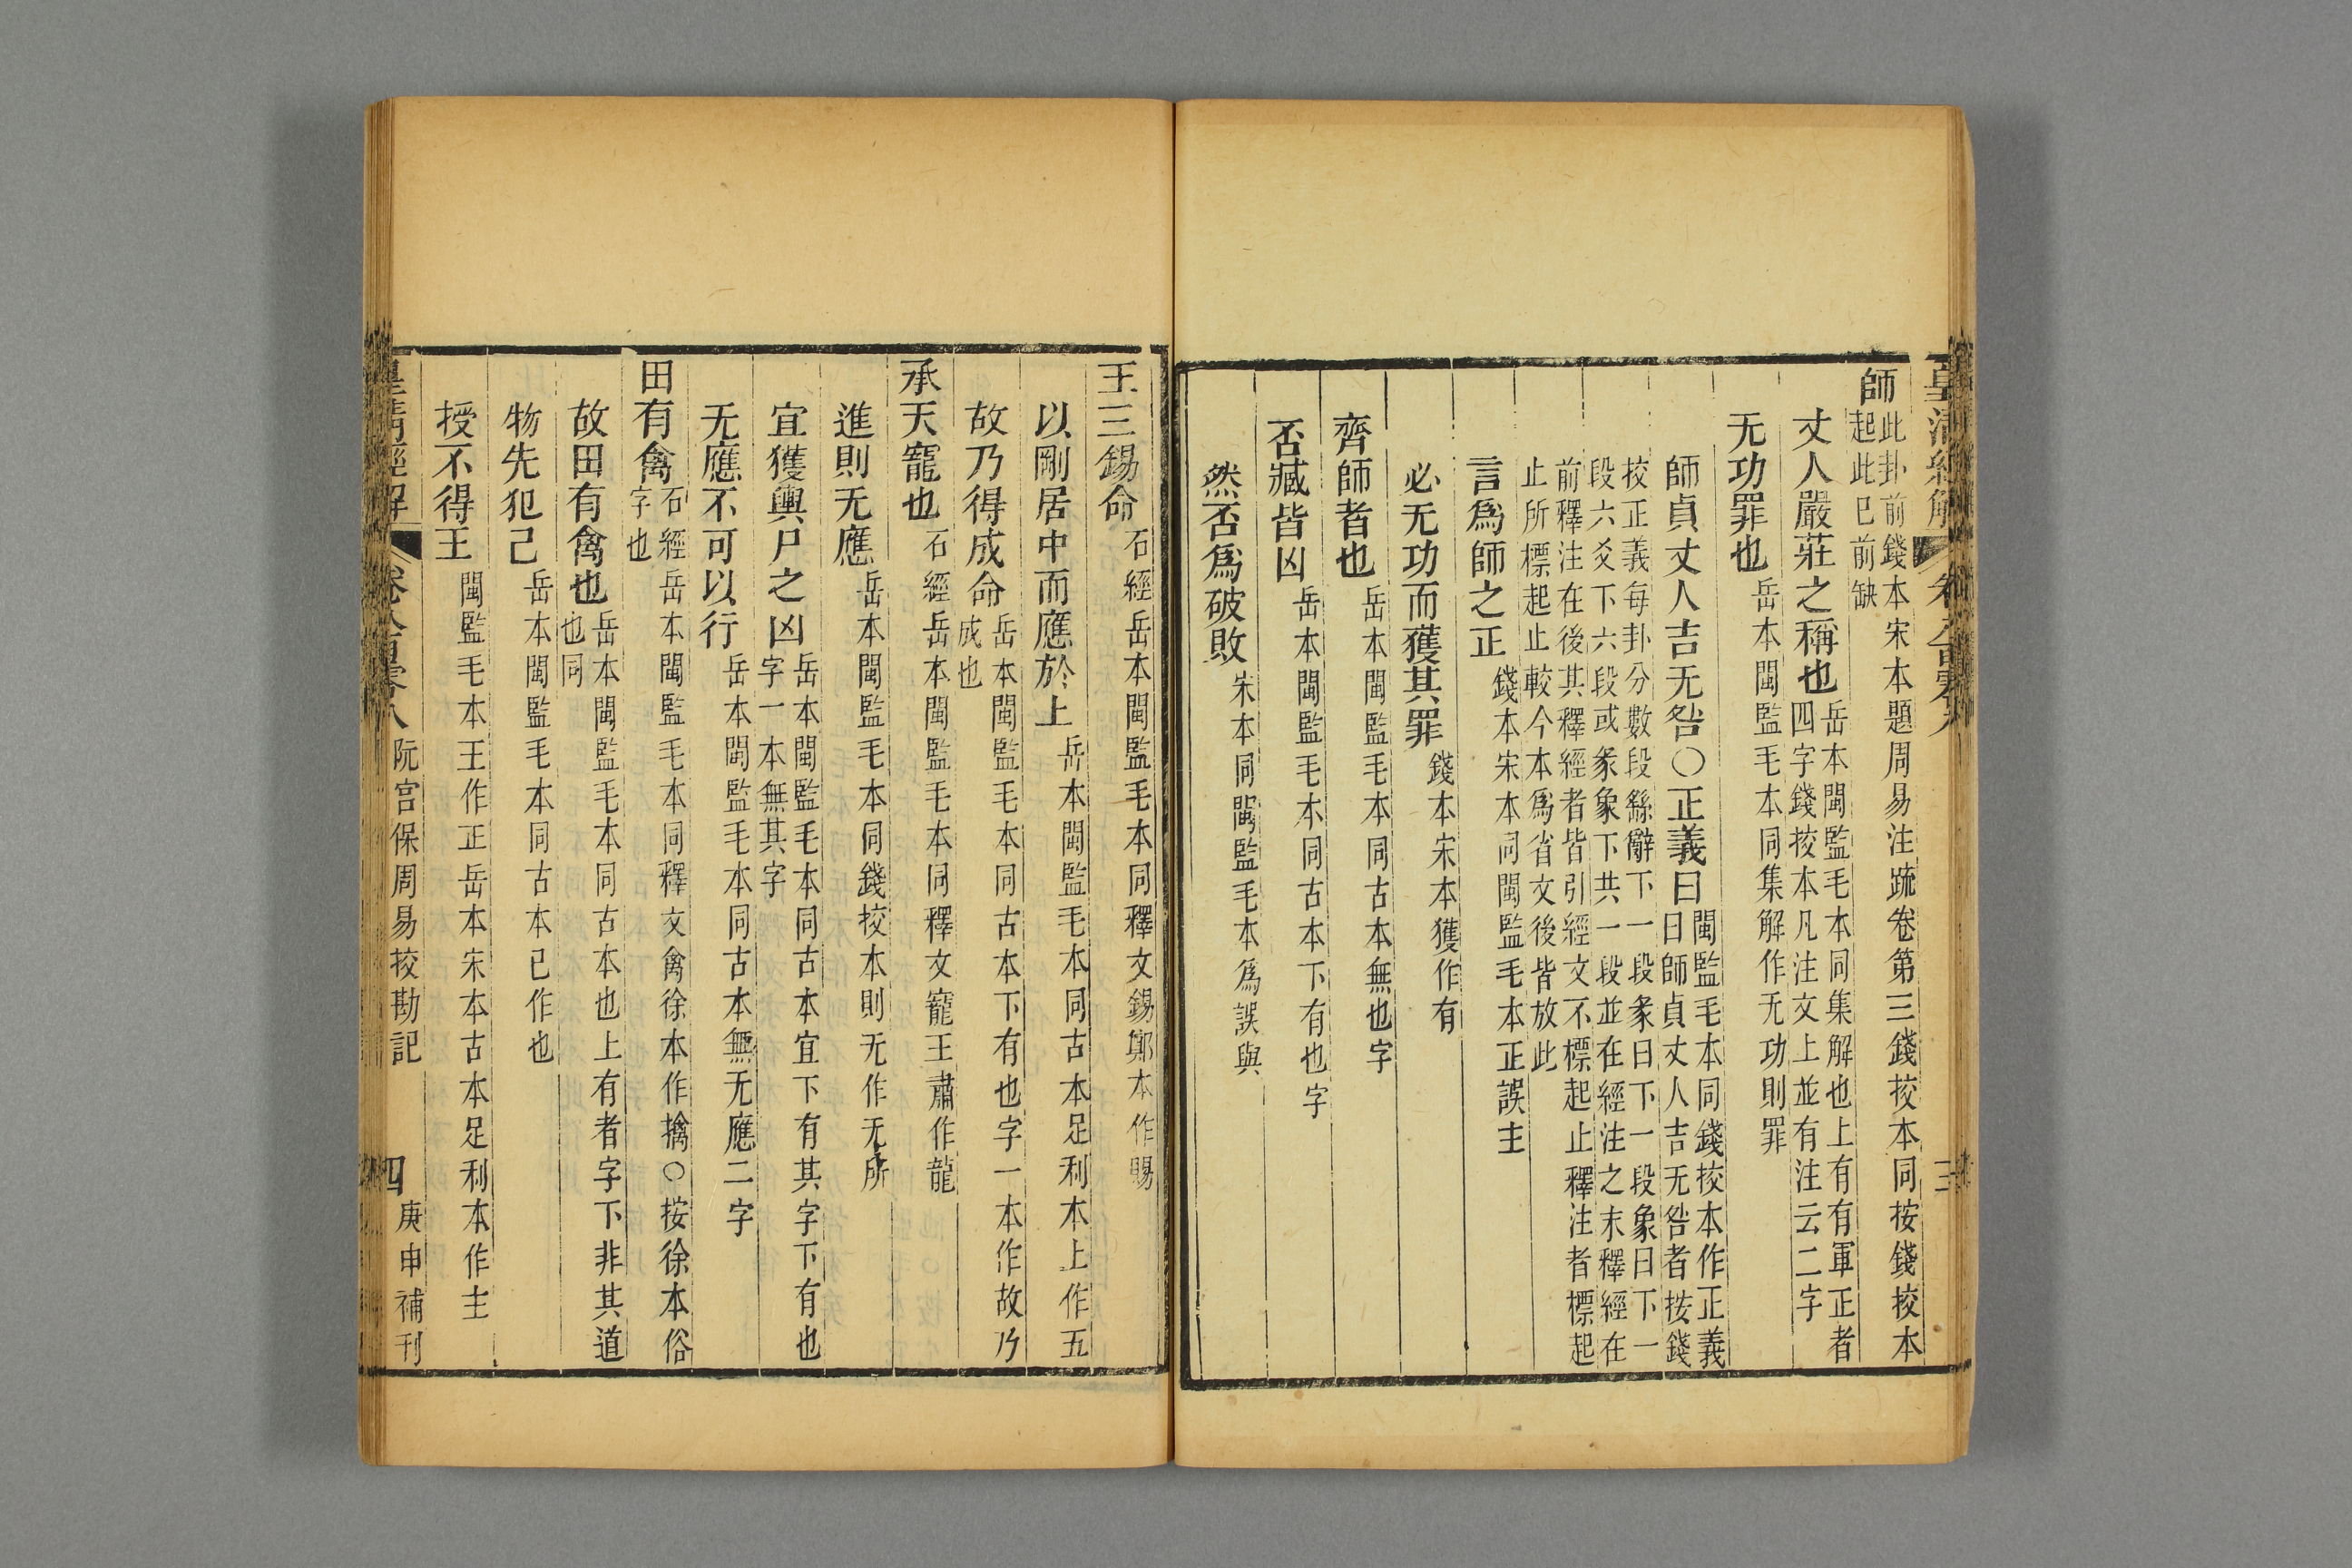 皇清經解 卷八百零八 三
師此卦前錢本宋本題周易注疏卷第三錢挍本同按錢挍本
起此已前缺
丈人嚴莊之稱也岳本閩監毛本同集解也上有有軍正者
四字錢挍本凡注文上並有注云二字
无功罪也岳本閩監毛本同集解作无功則罪
師貞丈人吉无咎○正義曰閩監毛本同錢挍本作正義
曰師貞丈人吉无咎者按錢
挍正義每卦分數段繇辭下一段彖曰下一段象曰下一
段六爻下六段或彖象下共一段並在經注之末釋經在
前釋注在後其釋經者皆引經文不標起止釋注者標起
止所標起止較今本爲省文後皆放此
言爲師之正錢本宋本同閩監毛本正誤主
必无功而獲其罪錢本宋本獲作有
齊師者也岳本閩監毛本同古本無也字
否臧皆凶岳本閩監毛本同古本下有也字
然否爲破敗宋本同閩監毛本爲誤與
王三錫命石經岳本閩監毛本同釋文錫鄭本作賜
以剛居中而應於上岳本閩監毛本同古本足利本上作五
故乃得成命岳本閩監毛本同古本下有也字一本作故乃
成也
承天寵也石經岳本閩監毛本同釋文寵王肅作龍
進則无應岳本閩監毛本同錢挍本則无作无所
宜獲輿尸之凶岳本閩監毛本同古本宜下有其字下有也
字一本無其字
无應不可以行岳本閩監毛本同古本無无應二字
田有禽石經岳本閩監毛本同釋文禽徐本作擒○按徐本俗
字也
故田有禽也岳本閩監毛本同古本也上有者字下非其道
也同
物先犯己岳本閩監毛本同古本已作也
授不得王閩監毛本王作正岳本宋本古本足利本作主
皇清經解 卷八百零八 阮宮保周易挍勘記 四 庚申補刊